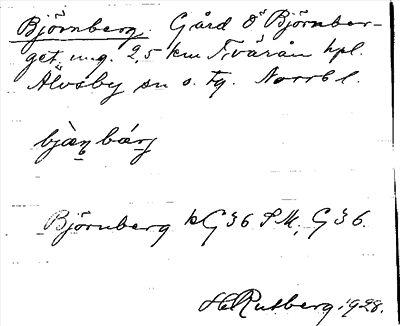 Björnberg. Gård å Björnber-
get, 2,5 km Tvärån hpl.
Älvsby sn o. tg. Norrb l.
Björnberg G36
H Rutberg 1928.